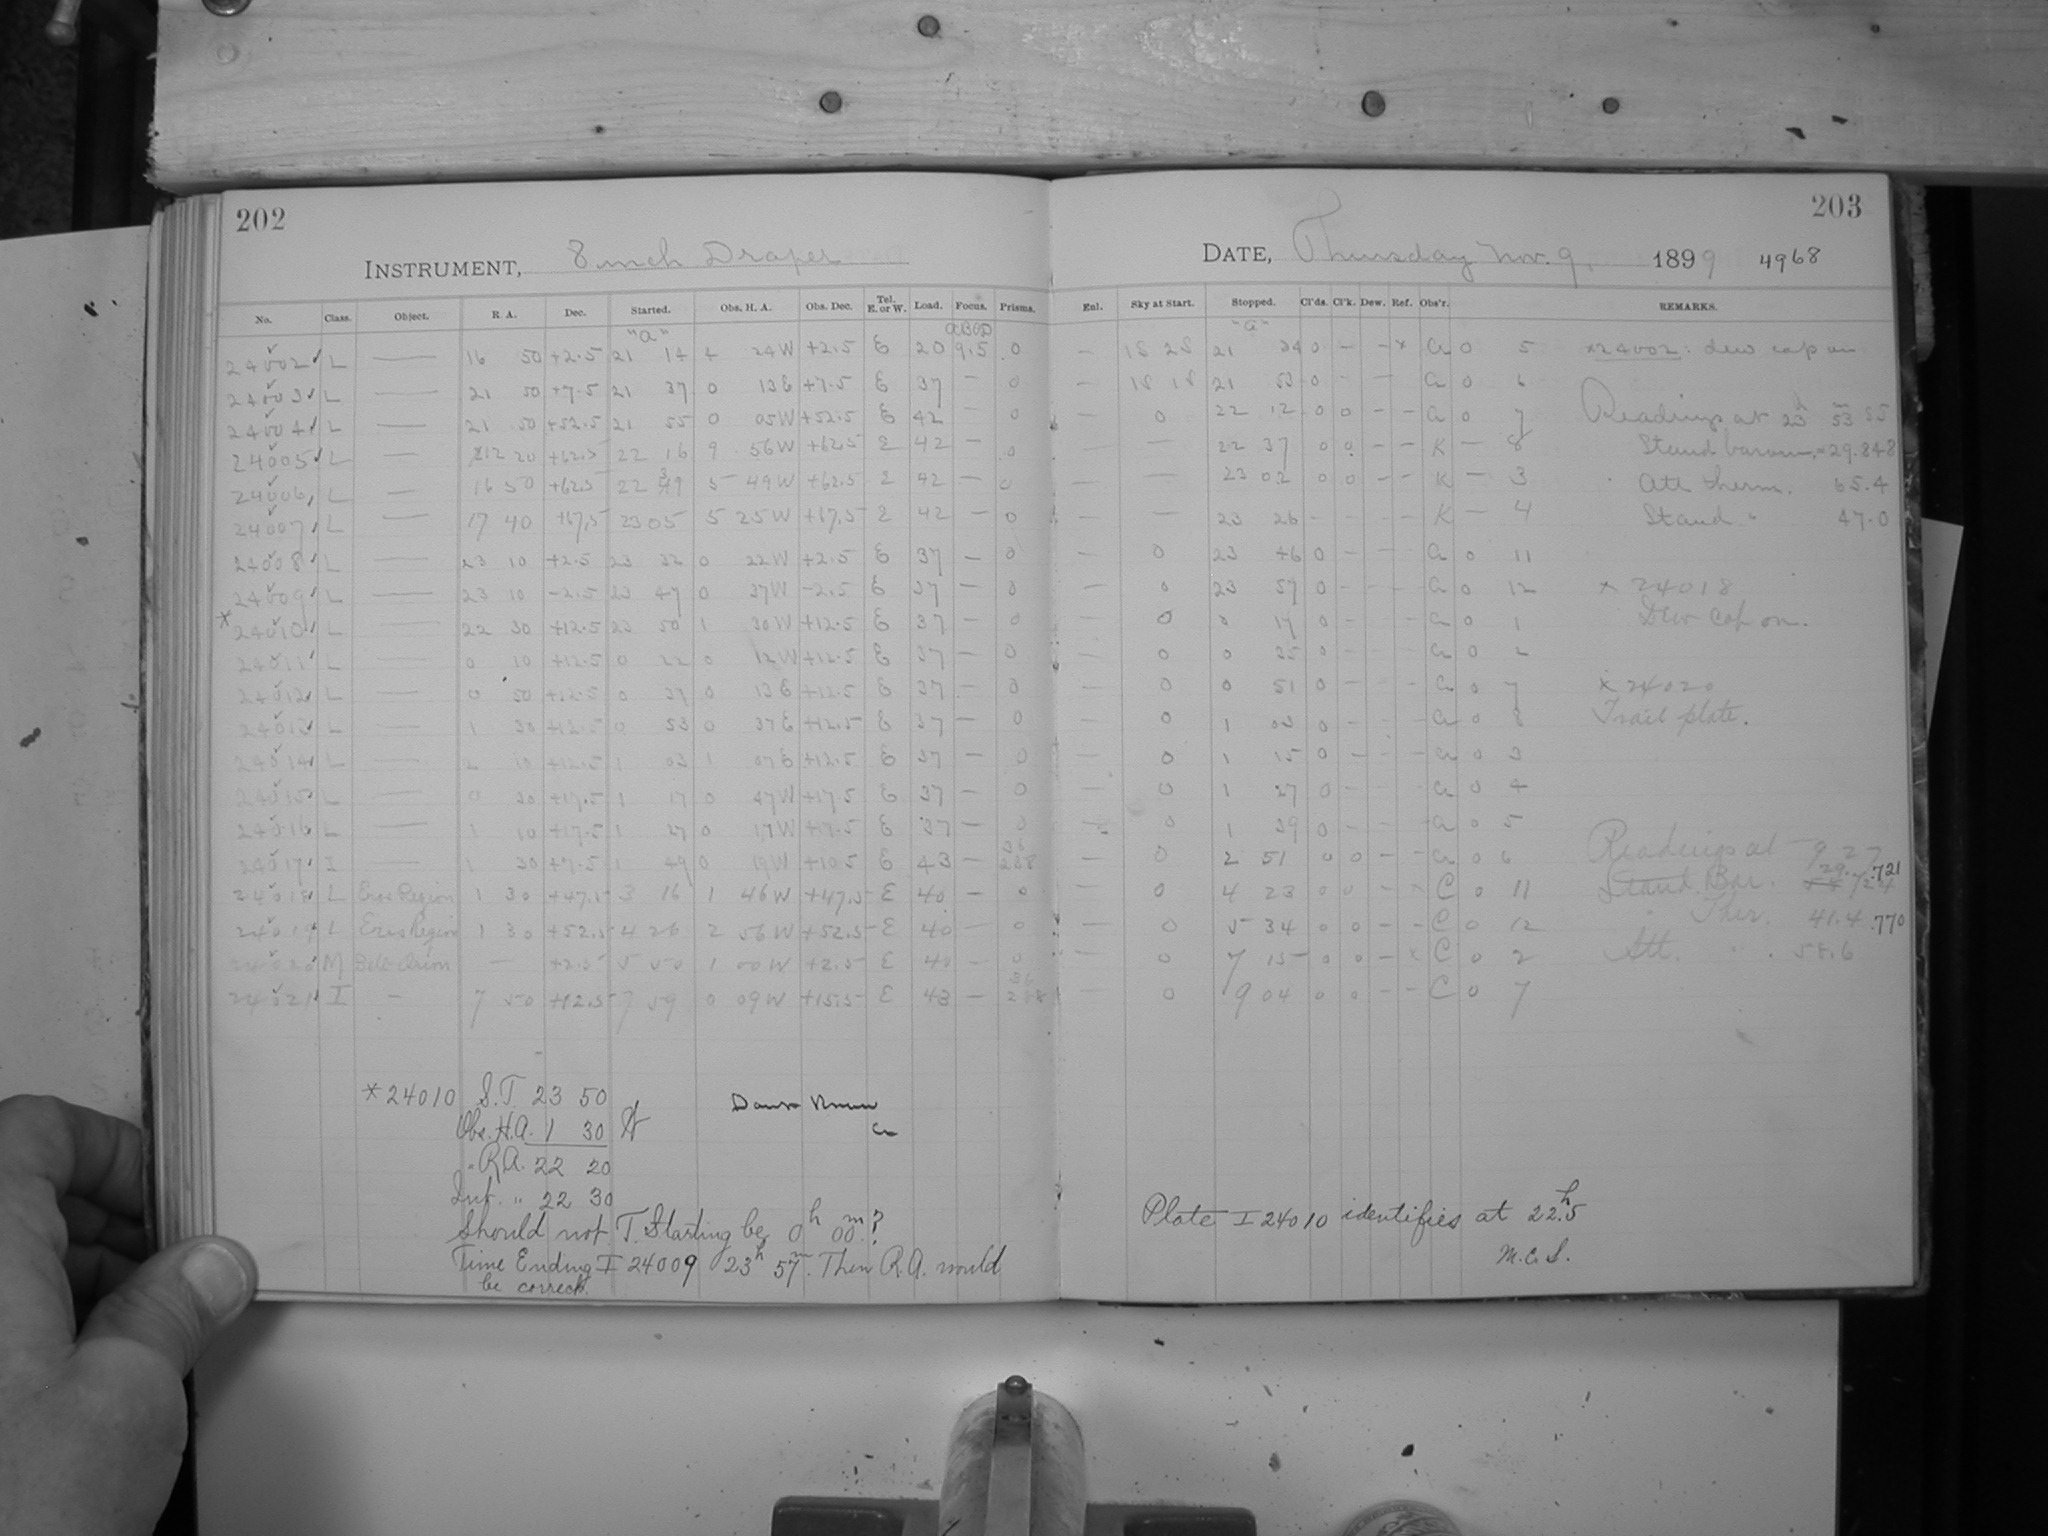 202
INSTRUMENT, 8 inch Draper
No. Class. Object. R. A. Dec. Started. Obs. H. A. Obs. Dec. Tel. E. or W. Load. Focus. Prisms.
"a"
24002 L — 16 50 +2.5 21 14 4 24W +2.5 E 20 9.5 0
24003 L — 21 50 +7.5 21 37 0 13E +7.5 E 37 — 0
24004 L — 21 50 +52.5 21 55 0 05W +52.5 E 42 — 0
24005 L — 12 20 +62.5 22 16 9 56W +62.5 E 42 — 0
24006 L — 16 50 +62.5 22 39 5 49W +62.5 E 42 — 0
24007 L — 17 40 +67.5 23 05 5 25W +67.5 E 42 — 0
24008 L — 23 10 +2.5 23 32 0 22W +2.5 E 37 — 0
24009 L — 23 10 -2.5 23 47 0 37W -2.5 E 37 — 0
*24010 L — 22 30 +12.5 23 50 1 30W +12.5 E 37 — 0
24011 L — 0 10 +12.5 0 22 0 12W +12.5 E 37 — 0
24012 L — 0 50 +12.5 0 37 0 13E +12.5 E 37 — 0
24013 L — 1 30 +12.5 0 53 0 37E +12.5 E 37 — 0
24014 L — 2 10 +12.5 1 03 1 07E +12.5 E 37 — 0
24015 L — 0 30 +17.5 1 17 0 47W +17.5 E 37 — 0
24016 L — 1 10 +17.5 1 27 0 17W +17.5 E 37 — 0
24017 I — 1 30 +7.5 1 49 0 19W +10.5 E 43 —
24018 L Eros Region 1 30 +47.5 3 16 1 46W +47.5 E 40 — 0
24019 L Eros Region 1 30 +52.5 4 26 2 56W +52.5 E 40 — 0
24020 M Belt Orion — +2.5 5 50 1 00W +2.5 E 40 — 0
24021 I — 7 50 +12.5 7 59 0 09W +15.5 E 43 —
*24010 S.T. 23 50
Obs. H.A. 1 30 W
" R.A. 22 20
Int. " 22 30
Should not T. Starting be 0h 00m?
Time Ending I 24009 23h 57m. Then R.A. would
be correct.
203
DATE, Thursday Nov. 9, 1899 4968
Enl. Sky at Start. Stopped. Cl'ds. Cl'k. Dew. Ref. Obs'r. REMARKS.
"a"
— 18 28 21 34 0 — — x a 0 5 *24002: dew cap on
— 18 18 21 53 0 — — a 0 6
— 0 22 12 0 0 — — a 0 7 Readings at 23h 53m
— — 22 37 0 0 — — K — 8 Stand barom. = 29.848
— — 23 02 0 0 — — K — 3 Att therm. 65.4
— — 23 26 — — — — K — 4 Stand " 47.0
— 0 23 46 0 — — — a 0 11
— 0 23 57 0 — — — a 0 12 x 24018
— 0 0 14 0 — — — a 0 1 Dew cap on.
— 0 0 35 0 — — — a 0 2
— 0 0 51 0 — — — a 0 7 x 24020
— 0 1 03 0 — — — a 0 8 Trail plate.
— 0 1 15 0 — — — a 0 3
— 0 1 27 0 — — — a 0 4
— 0 1 39 0 — — — a 0 5
— 0 2 51 0 0 — — a 0 6 Readings at 9 27
— 0 4 23 0 0 — x C 0 11 Stand. Bar. 29. .721
— 0 5 34 0 0 — — C 0 12 " Ther. 41.4 .770
— 0 7 15 0 0 — x C 0 2 Att. " 58.6
— 0 9 04 0 0 — — C 0 7
Plate I 24010 identifies at 22h.5
M.C.S.